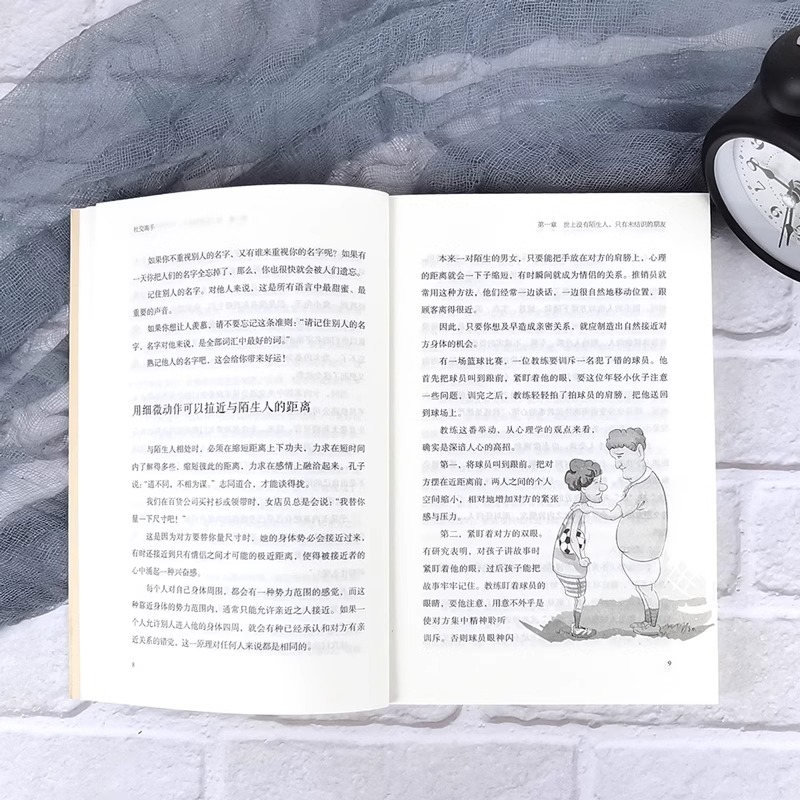 社交高手
如果你不重视别人的名字，又有谁来重视你的名字呢？如果有
一天你把人们的名字全忘掉了，那么，你也很快就会被人们遗忘。
记住别人的名字。对他人来说，这是所有语言中最甜蜜、最
重要的声音。
如果你想让人羡慕，请不要忘记这条准则：“请记住别人的名
字，名字对他来说，是全部词汇中最好的词。”
熟记他人的名字吧，这会给你带来好运！
用细微动作可以拉近与陌生人的距离
与陌生人相处时，必须在缩短距离上下功夫，力求在短时间
内了解得多些，缩短彼此的距离，力求在感情上融洽起来。孔子
说：“道不同，不相为谋。”志同道合，才能谈得拢。
我们在百货公司买衬衫或领带时，女店员总是会说：“我替你
量一下尺寸吧！”
这是因为对方要替你量尺寸时，她的身体势必会接近过来，
有时还接近到只有情侣之间才可能的极近距离，使得被接近者的
心中涌起一种兴奋感。
每个人对自己身体周围，都会有一种势力范围的感觉，而这
种靠近身体的势力范围内，通常只能允许亲近之人接近。如果一
个人允许别人进入他的身体四周，就会有种已经承认和对方有亲
近关系的错觉，这一原理对任何人来说都是相同的。
8
第一章 世上没有陌生人，只有未结识的朋友
本来一对陌生的男女，只要能把手放在对方的肩膀上，心理
的距离就会一下子缩短，有时瞬间就成为情侣的关系。推销员就
常用这种方法，他们经常一边谈话，一边很自然地移动位置，跟
顾客离得很近。
因此，只要你想及早造成亲密关系，就应制造出自然接近对
方身体的机会。
有一场篮球比赛，一位教练要训斥一名犯了错的球员。他
首先把球员叫到跟前，紧盯着他的眼，要这位年轻小伙子注意
一些问题，训完之后，教练轻轻拍了拍球员的肩膀，把他送回
到球场上。
教练这番举动，从心理学的观点来看，
确实是深谙人心的高招。
第一，将球员叫到跟前。把对
方摆在近距离前，两人之间的个人
空间缩小，相对地增加对方的紧张
感与压力。
第二，紧盯着对方的双眼。
有研究表明，对孩子讲故事时
紧盯着他的眼，过后孩子能把
故事牢牢记住。教练盯着球员的
眼睛，要他注意，用意不外乎是
使对方集中精神聆听
训斥。否则球员眼神闪
9